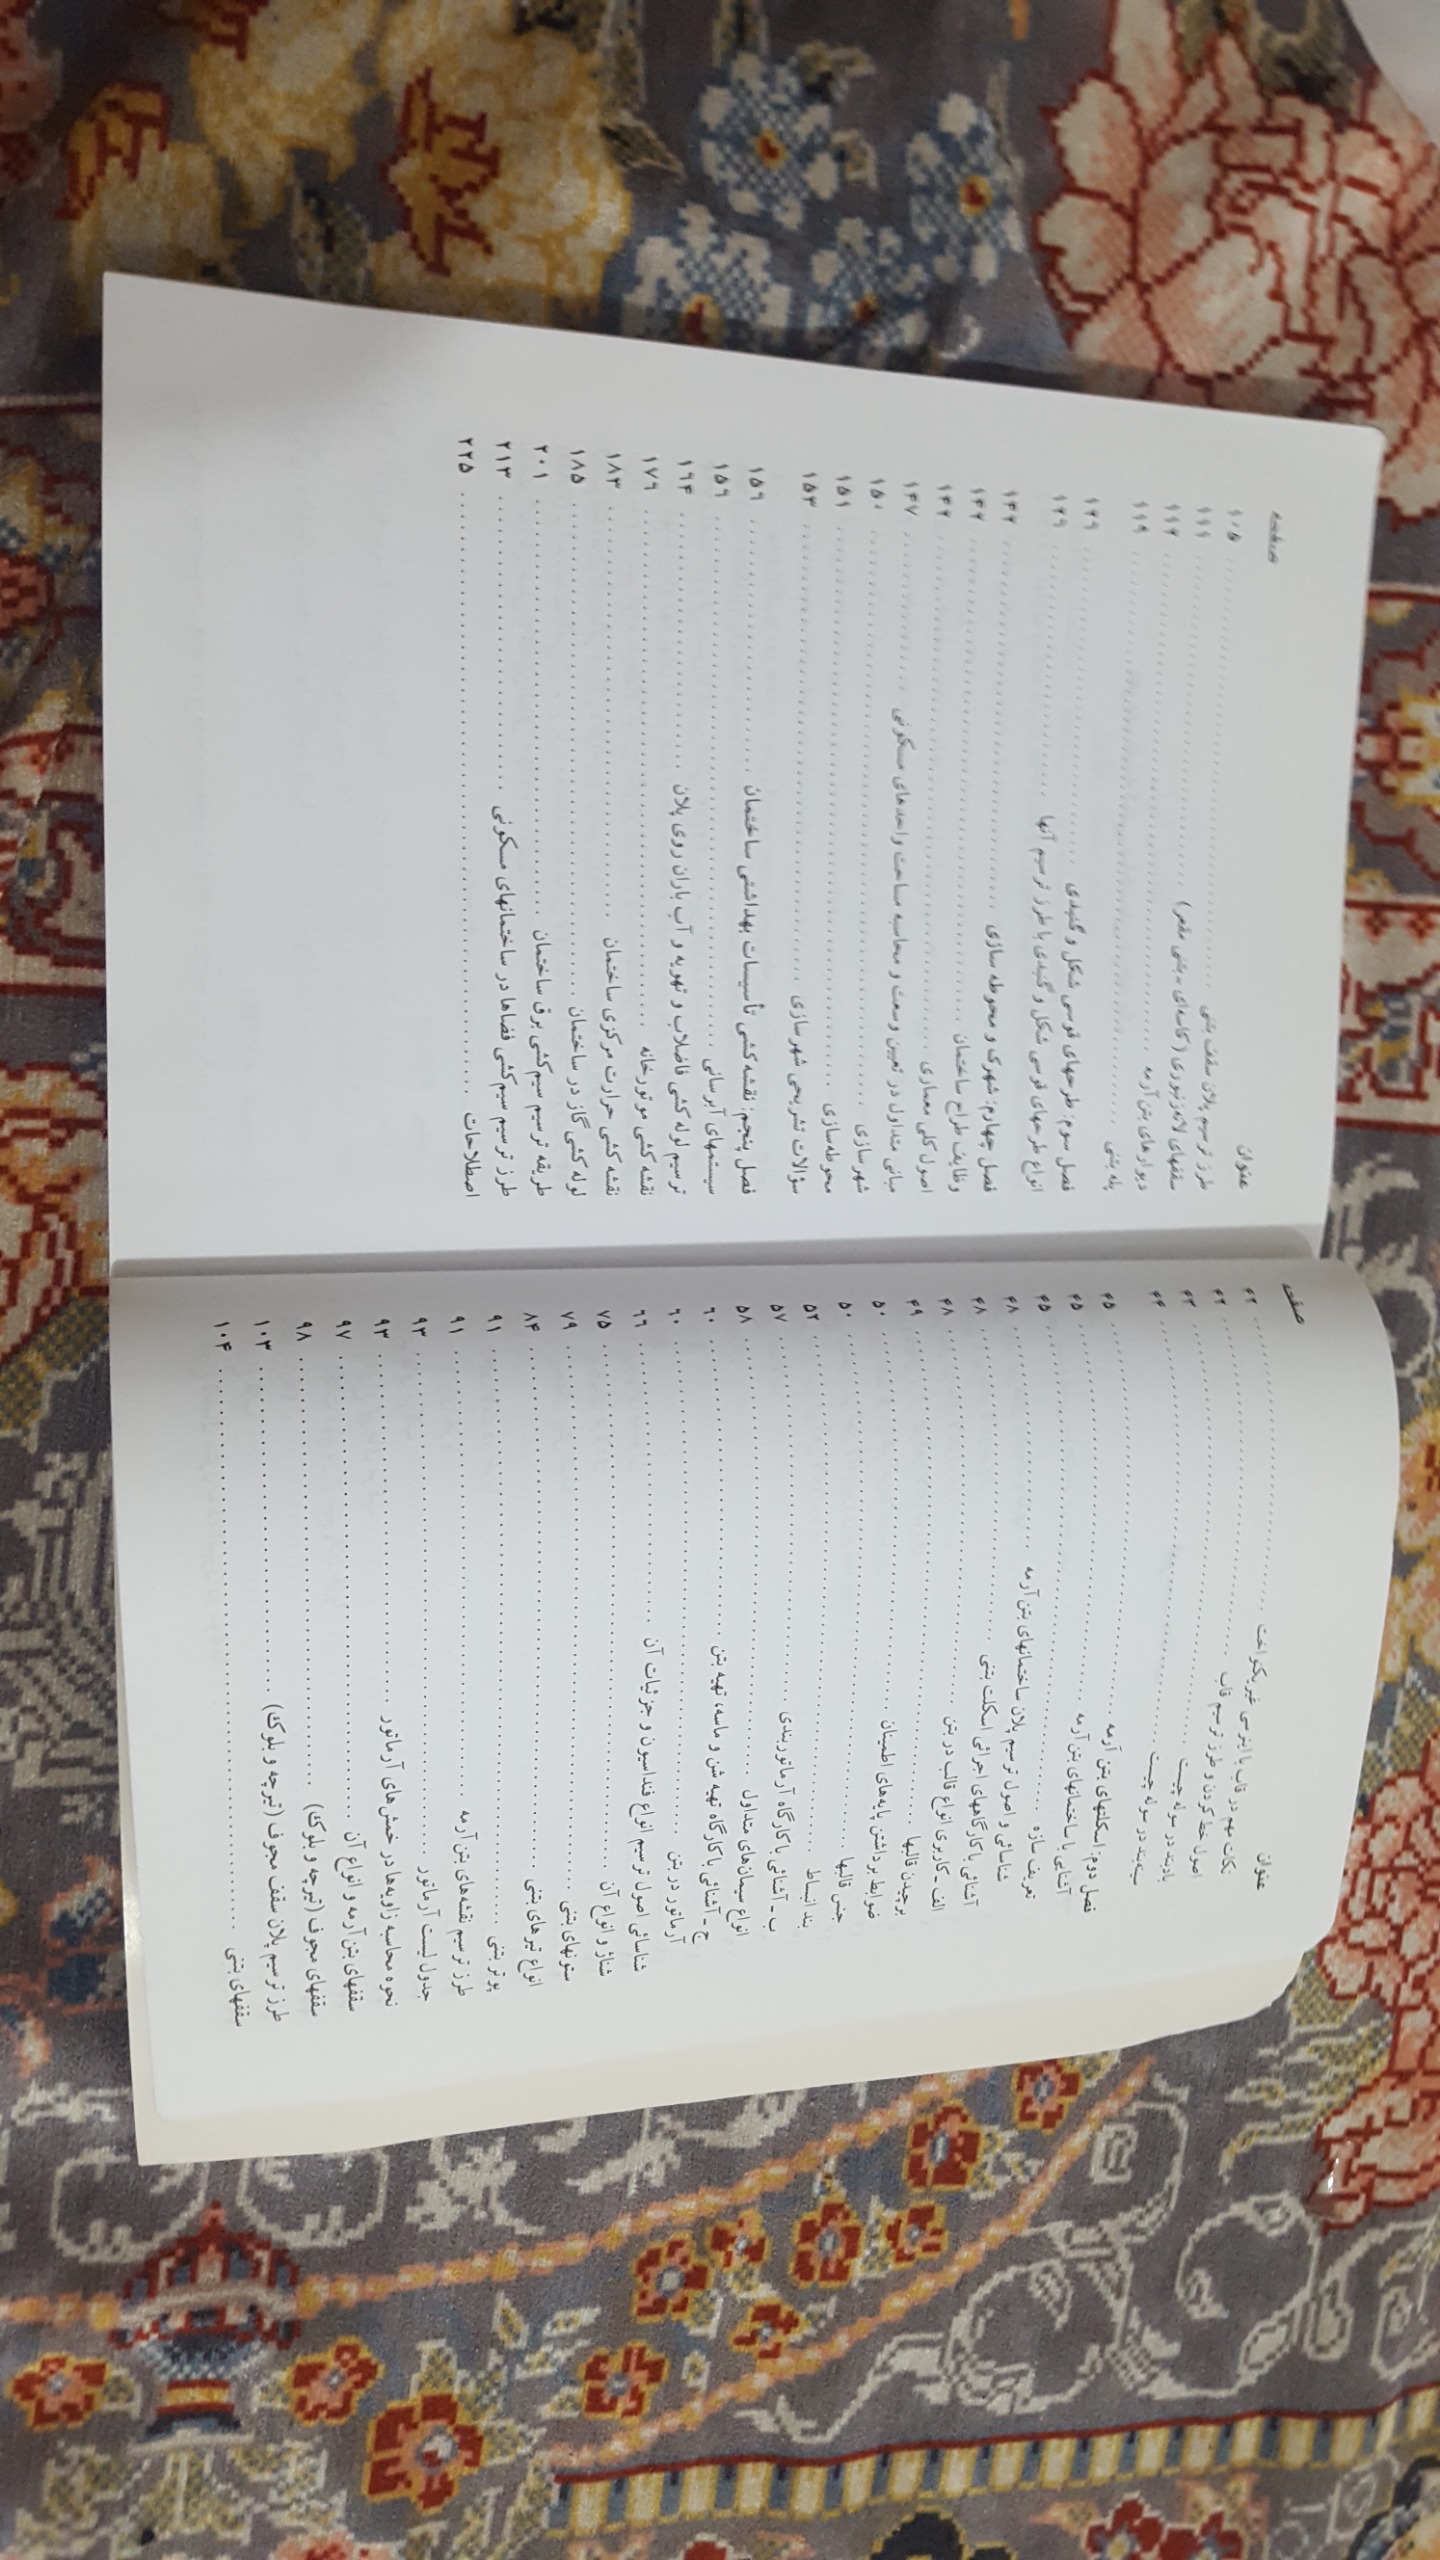 عنوان صفحه
نکات مهم در قاب با اینرسی غیر یکنواخت ۴۲
اصول خط کردن و طرز ترسیم قاب ۴۲
بادبند در سوله چیست ۴۳
سیه‌بند در سوله چیست ۴۴
فصل دوم: اسکلتهای بتن آرمه ۴۵
آشنایی با ساختمانهای بتن آرمه ۴۵
تعریف سازه ۴۵
شناسائی و اصول ترسیم پلان ساختمانهای بتن آرمه ۴۸
آشنائی با کارگاههای اجرائی اسکلت بتنی ۴۸
الف ـ کاربری انواع قالب در بتن ۴۸
برچیدن قالبها ۴۹
ضوابط برداشتن پایه‌های اطمینان ۵۰
جنس قالبها ۵۰
بند انبساط ۵۲
ب ـ آشنائی با کارگاه آرماتوربندی ۵۷
انواع سیمان‌های متداول ۵۸
ج ـ آشنائی با کارگاه تهیه شن و ماسه، تهیه بتن ۶۰
آرماتور در بتن ۶۰
شناسائی اصول ترسیم انواع فنداسیون و جزئیات آن ۶۶
شناژ و انواع آن ۷۵
ستونهای بتنی ۷۹
انواع تیرهای بتنی ۸۴
پوتر بتنی ۹۱
طرز ترسیم نقشه‌های بتن آرمه ۹۱
جدول لیست آرماتور ۹۳
نحوه محاسبه زاویه‌ها در خمش‌های آرماتور ۹۳
سقفهای بتن آرمه و انواع آن ۹۷
سقفهای مجوف (تیرچه و بلوک) ۹۸
طرز ترسیم پلان سقف مجوف (تیرچه و بلوک) ۱۰۳
سقفهای بتنی ۱۰۴
عنوان صفحه
طرز ترسیم پلان سقف بتنی ۱۰۵
سقفهای لانه‌زنبوری (کاسه‌ای ـ بتنی مقعر) ۱۱۱
دیوارهای بتن آرمه ۱۱۲
پله بتنی ۱۱۹
فصل سوم: طرحهای قوسی شکل و گنبدی ۱۲۹
انواع طرحهای قوسی شکل و گنبدی با طرز ترسیم آنها ۱۲۹
فصل چهارم: شهرک و محوطه سازی ۱۴۲
وظایف طراح ساختمان ۱۴۲
اصول کلی معماری ۱۴۲
مبانی متداول در تعیین وسعت و محاسبه مساحت واحدهای مسکونی ۱۴۷
شهرسازی ۱۵۰
محوطه‌سازی ۱۵۱
سؤالات تشریحی شهرسازی ۱۵۳
فصل پنجم: نقشه‌کشی تأسیسات بهداشتی ساختمان ۱۵۹
سیستمهای آبرسانی ۱۵۹
ترسیم لوله کشی فاضلاب و تهویه و آب باران روی پلان ۱۶۴
نقشه کشی موتورخانه ۱۷۶
نقشه کشی حرارت مرکزی ساختمان ۱۸۳
لوله کشی گاز در ساختمان ۱۸۵
طریقه ترسیم سیم‌کشی برق ساختمان ۲۰۱
طرز ترسیم سیم‌کشی فضاها در ساختمانهای مسکونی ۲۱۳
اصطلاحات ۲۲۵